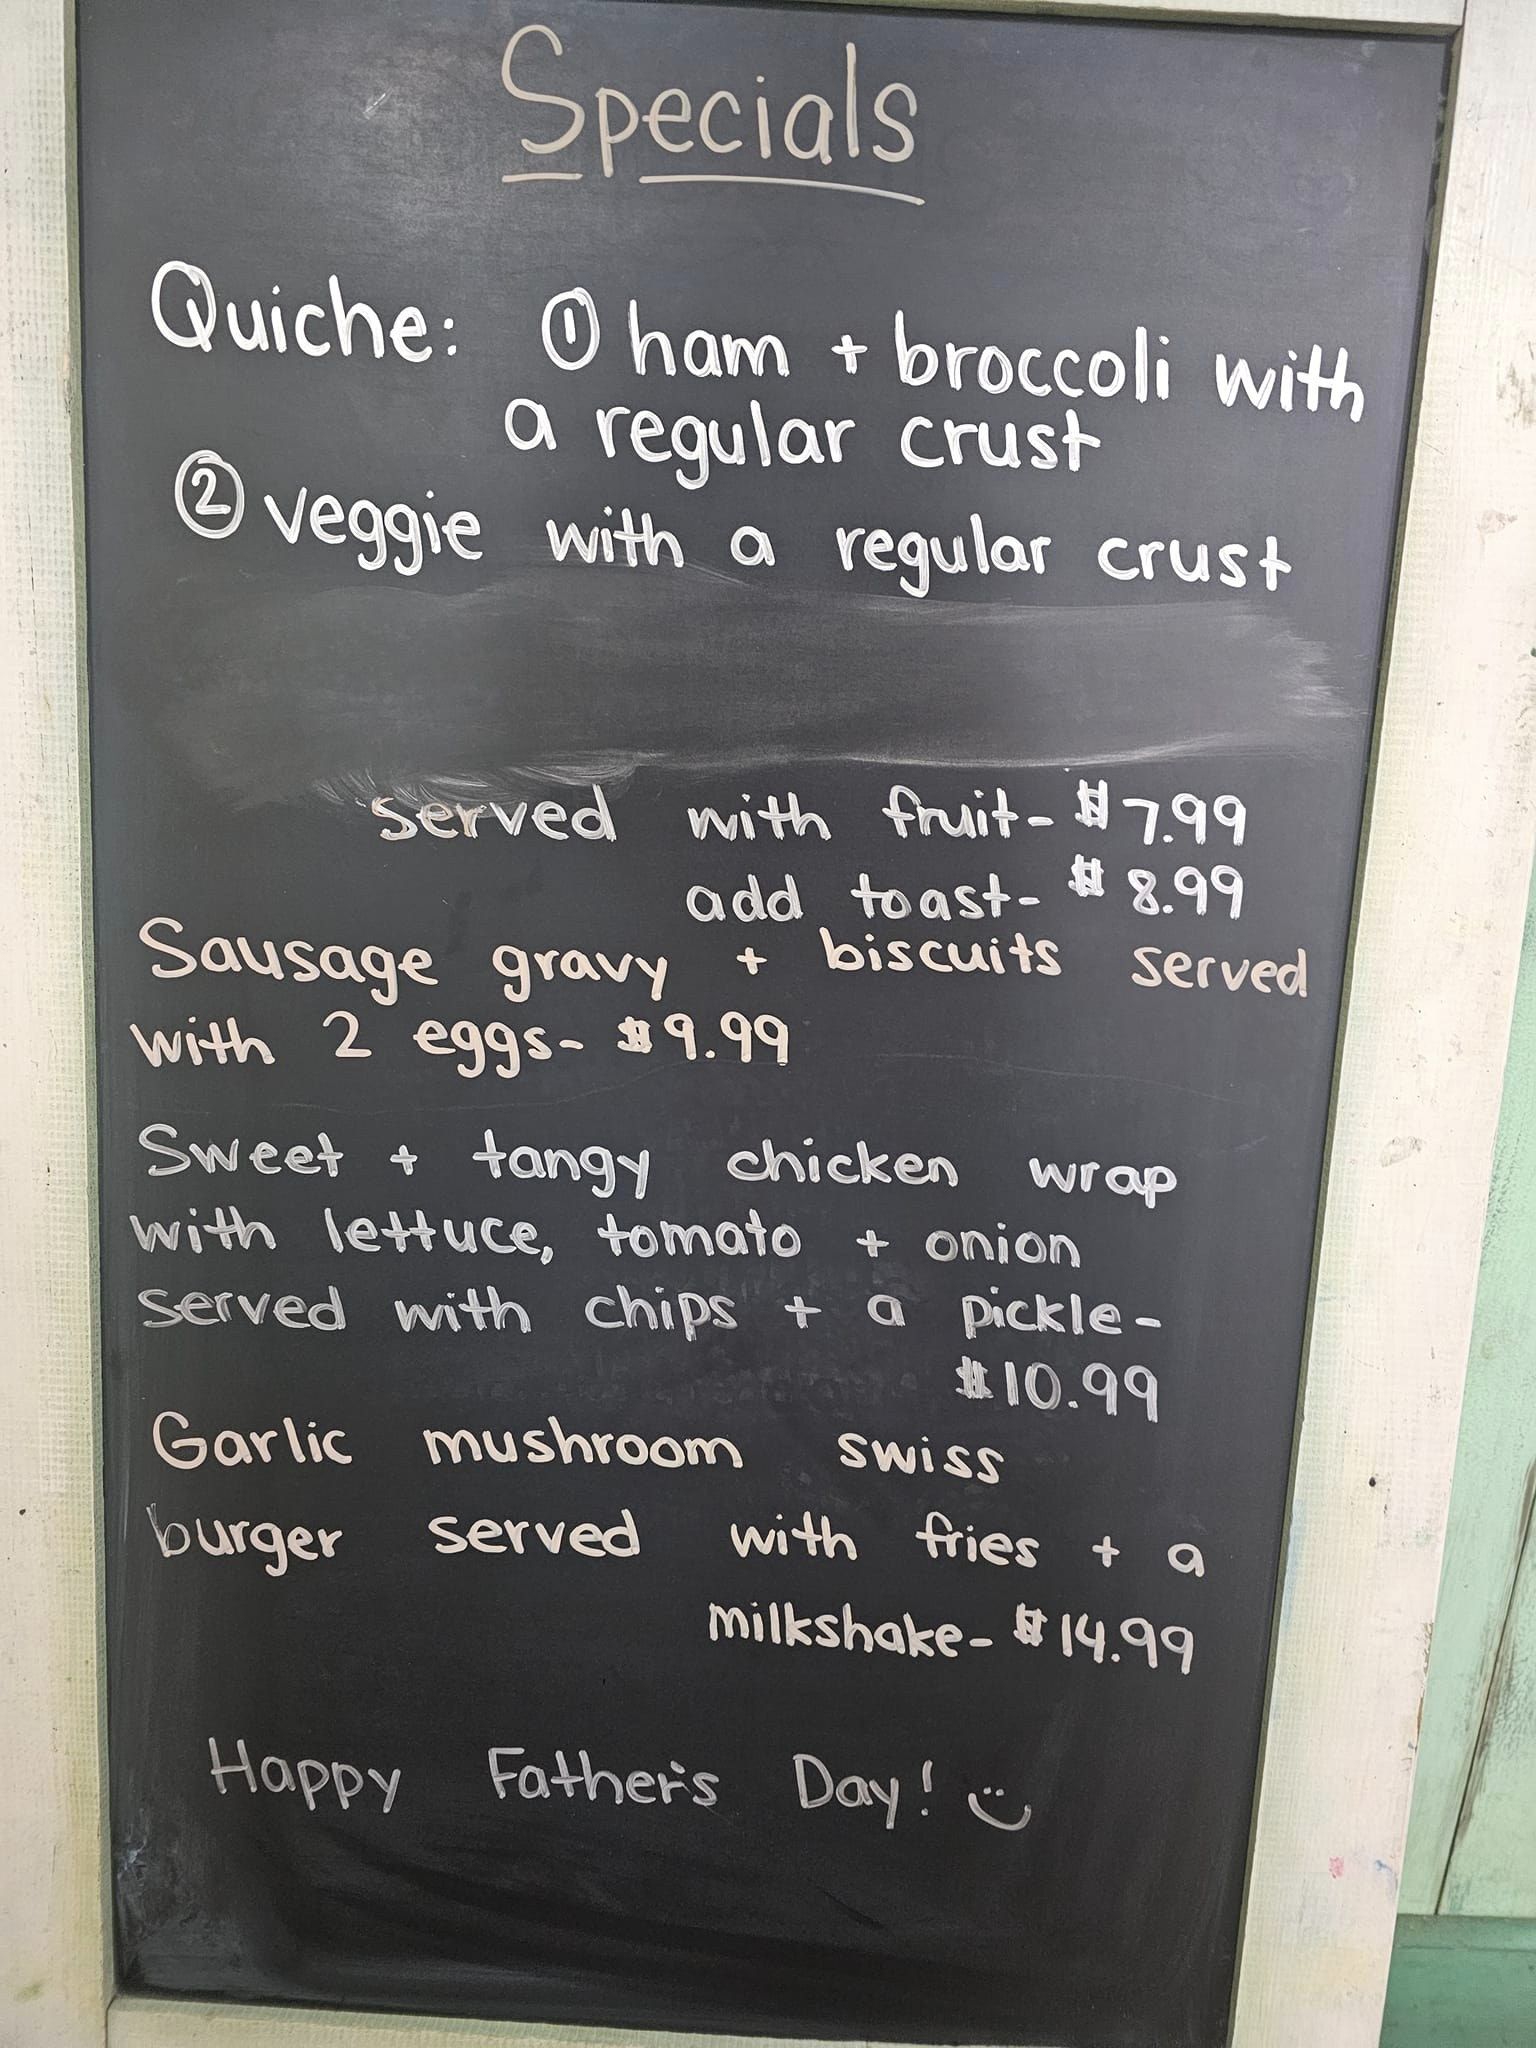 Specials
Quiche: ① ham + broccoli with
a regular crust
② veggie with a regular crust
served with fruit- $7.99
add toast- $8.99
Sausage gravy + biscuits served
with 2 eggs- $9.99
Sweet + tangy chicken wrap
with lettuce, tomato + onion
served with chips + a pickle-
$10.99
Garlic mushroom swiss
burger served with fries + a
milkshake- $14.99
Happy Father's Day! ☺